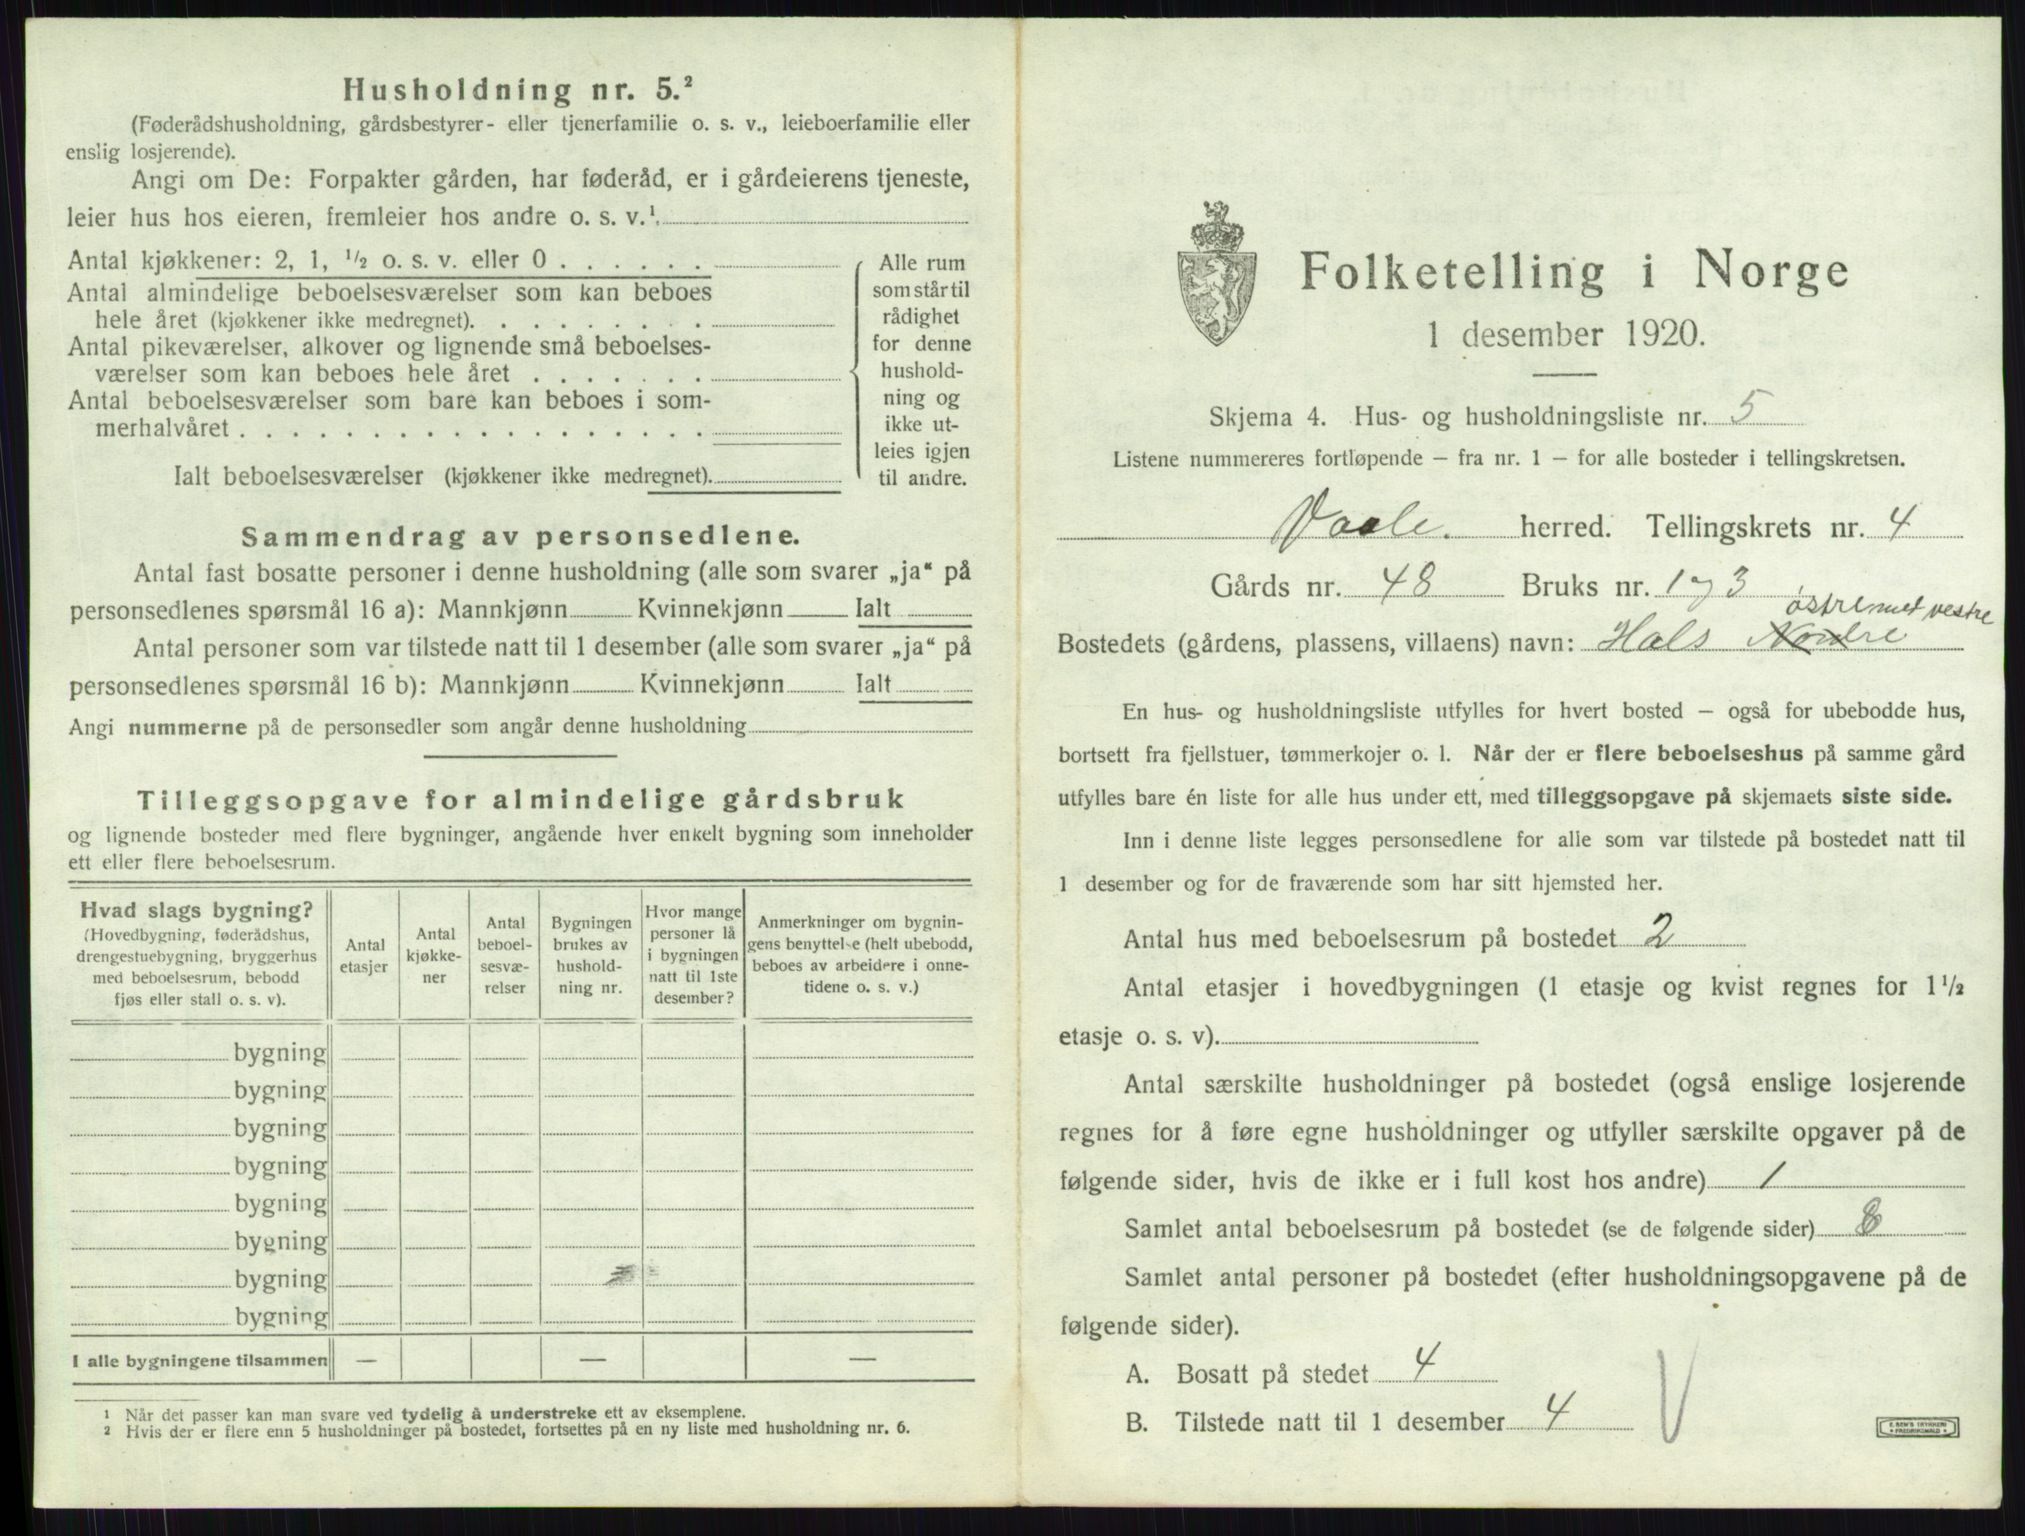 Husholdning nr. 5.²
(Føderådshusholdning, gårdsbestyrer- eller tjenerfamilie o. s. v., leieboerfamilie eller
enslig losjerende).
Angi om De: Forpakter gården, har føderåd, er i gårdeierens tjeneste,
leier hus hos eieren, fremleier hos andre o. s. v.¹.
Antal kjøkkener: 2, 1, ½ o. s. v. eller 0 . . . . . .
Antal almindelige beboelsesværelser som kan beboes
hele året (kjøkkener ikke medregnet). . . . . . . . .
Antal pikeværelser, alkover og lignende små beboelses-
værelser som kan beboes hele året . . . . . . .
Antal beboelsesværelser som bare kan beboes i som-
merhalvåret . . . . . . . . . . . . . . . . . .
Ialt beboelsesværelser (kjøkkener ikke medregnet).
Alle rum
som står til
rådighet
for denne
hushold-
ning og
ikke ut-
leies igjen
til andre.
Sammendrag av personsedlene.
Antal fast bosatte personer i denne husholdning (alle som svarer „ja“ på
personsedlenes spørsmål 16 a): Mannkjønn Kvinnekjønn Ialt
Antal personer som var tilstede natt til 1 desember (alle som svarer „ja“ på
personsedlenes spørsmål 16 b): Mannkjønn Kvinnekjønn Ialt
Angi nummerne på de personsedler som angår denne husholdning
Tilleggsopgave for almindelige gårdsbruk
og lignende bosteder med flere bygninger, angående hver enkelt bygning som inneholder
ett eller flere beboelsesrum.
Hvad slags bygning?
(Hovedbygning, føderådshus,
drengestuebygning, bryggerhus
med beboelsesrum, bebodd
fjøs eller stall o. s. v).
Antal
etasjer
Antal
kjøkke-
ner
Antal
beboel-
sesvæ-
relser
Bygningen
brukes av
hushold-
ning nr.
Hvor mange
personer lå
i bygningen
natt til 1ste
desember?
Anmerkninger om bygnin-
gens benyttelse (helt ubebodd,
beboes av arbeidere i onne-
tidene o. s. v.)
bygning
bygning
bygning
bygning
bygning
bygning
bygning
bygning
I alle bygningene tilsammen — — —
¹ Når det passer kan man svare ved tydelig å understreke ett av eksemplene.
² Hvis der er flere enn 5 husholdninger på bostedet, fortsettes på en ny liste med husholdning nr. 6.
Folketelling i Norge
1 desember 1920.
Skjema 4. Hus- og husholdningsliste nr. 5
Listene nummereres fortløpende – fra nr. 1 – for alle bosteder i tellingskretsen.
Vaale. herred. Tellingskrets nr. 4
Gårds nr. 48 Bruks nr. 1 og 3
østre med vestre
Bostedets (gårdens, plassens, villaens) navn: Hals Nordre
En hus- og husholdningsliste utfylles for hvert bosted – også for ubebodde hus,
bortsett fra fjellstuer, tømmerkojer o. l. Når der er flere beboelseshus på samme gård
utfylles bare én liste for alle hus under ett, med tilleggsopgave på skjemaets siste side.
Inn i denne liste legges personsedlene for alle som var tilstede på bostedet natt til
1 desember og for de fraværende som har sitt hjemsted her.
Antal hus med beboelsesrum på bostedet 2
Antal etasjer i hovedbygningen (1 etasje og kvist regnes for 1½
etasje o. s. v).
Antal særskilte husholdninger på bostedet (også enslige losjerende
regnes for å føre egne husholdninger og utfyller særskilte opgaver på de
følgende sider, hvis de ikke er i full kost hos andre) 1
Samlet antal beboelsesrum på bostedet (se de følgende sider) 8
Samlet antal personer på bostedet (efter husholdningsopgavene på de
følgende sider).
A. Bosatt på stedet 4
B. Tilstede natt til 1 desember 4